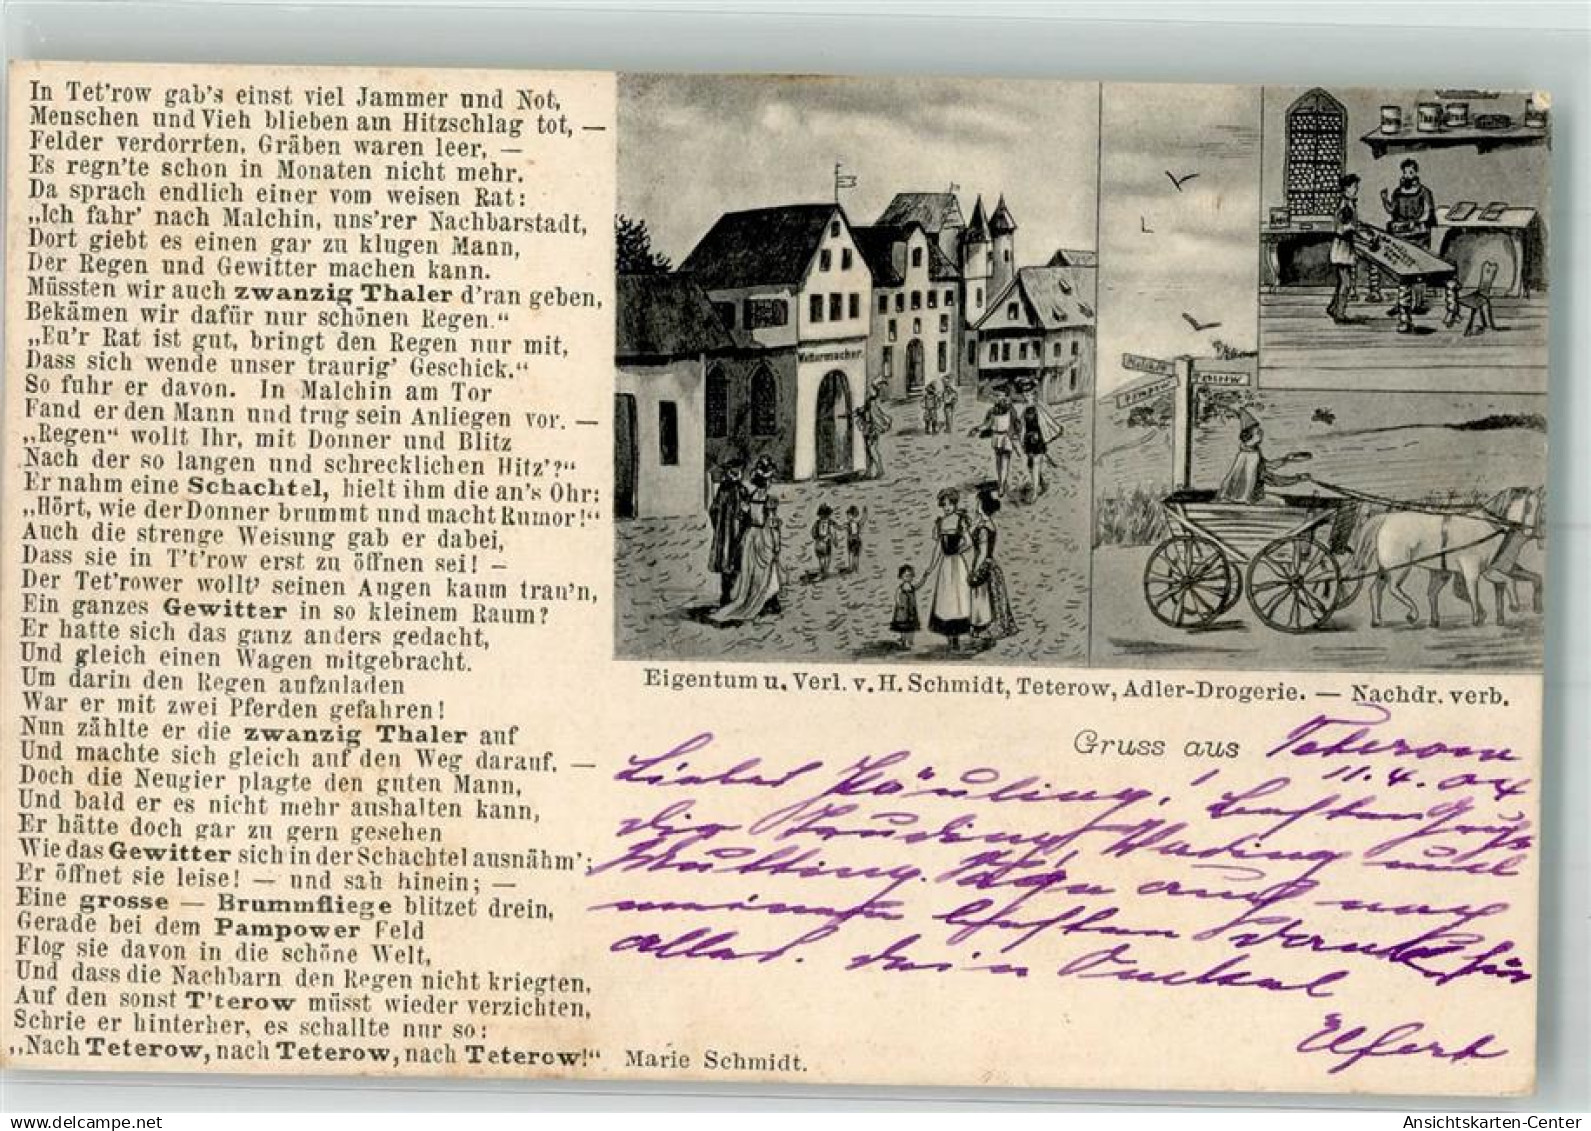 In Tet'row gab's einst viel Jammer und Not,
Menschen und Vieh blieben am Hitzschlag tot, —
Felder verdorrten, Gräben waren leer, —
Es regn'te schon in Monaten nicht mehr.
Da sprach endlich einer vom weisen Rat:
„Ich fahr' nach Malchin, uns'rer Nachbarstadt,
Dort giebt es einen gar zu klugen Mann,
Der Regen und Gewitter machen kann.
Müssten wir auch zwanzig Thaler d'ran geben,
Bekämen wir dafür nur schönen Regen."
„Eu'r Rat ist gut, bringt den Regen nur mit,
Dass sich wende unser traurig' Geschick."
So fuhr er davon. In Malchin am Tor
Fand er den Mann und trug sein Anliegen vor. —
„Regen" wollt Ihr, mit Donner und Blitz
Nach der so langen und schrecklichen Hitz'?"
Er nahm eine Schachtel, hielt ihm die an's Ohr:
„Hört, wie der Donner brummt und macht Rumor!"
Auch die strenge Weisung gab er dabei,
Dass sie in T't'row erst zu öffnen sei! —
Der Tet'rower wollt' seinen Augen kaum trau'n,
Ein ganzes Gewitter in so kleinem Raum?
Er hatte sich das ganz anders gedacht,
Und gleich einen Wagen mitgebracht.
Um darin den Regen aufzuladen
War er mit zwei Pferden gefahren!
Nun zählte er die zwanzig Thaler auf
Und machte sich gleich auf den Weg darauf. —
Doch die Neugier plagte den guten Mann,
Und bald er es nicht mehr aushalten kann,
Er hätte doch gar zu gern gesehen
Wie das Gewitter sich in der Schachtel ausnähm';
Er öffnet sie leise! — und sah hinein; —
Eine grosse — Brummfliege blitzet drein,
Gerade bei dem Pampower Feld
Flog sie davon in die schöne Welt,
Und dass die Nachbarn den Regen nicht kriegten,
Auf den sonst T'terow müsst wieder verzichten,
Schrie er hinterher, es schallte nur so:
„Nach Teterow, nach Teterow, nach Teterow!"
Marie Schmidt.
Wettermacher.
Eigentum u. Verl. v. H. Schmidt, Teterow, Adler-Drogerie. — Nachdr. verb.
Gruss aus Teterow
11.4.04
Liebes Päuling! Besten Gruß
Mutting. auch noch
meinen besten Dank für
alles. Dein Onkel